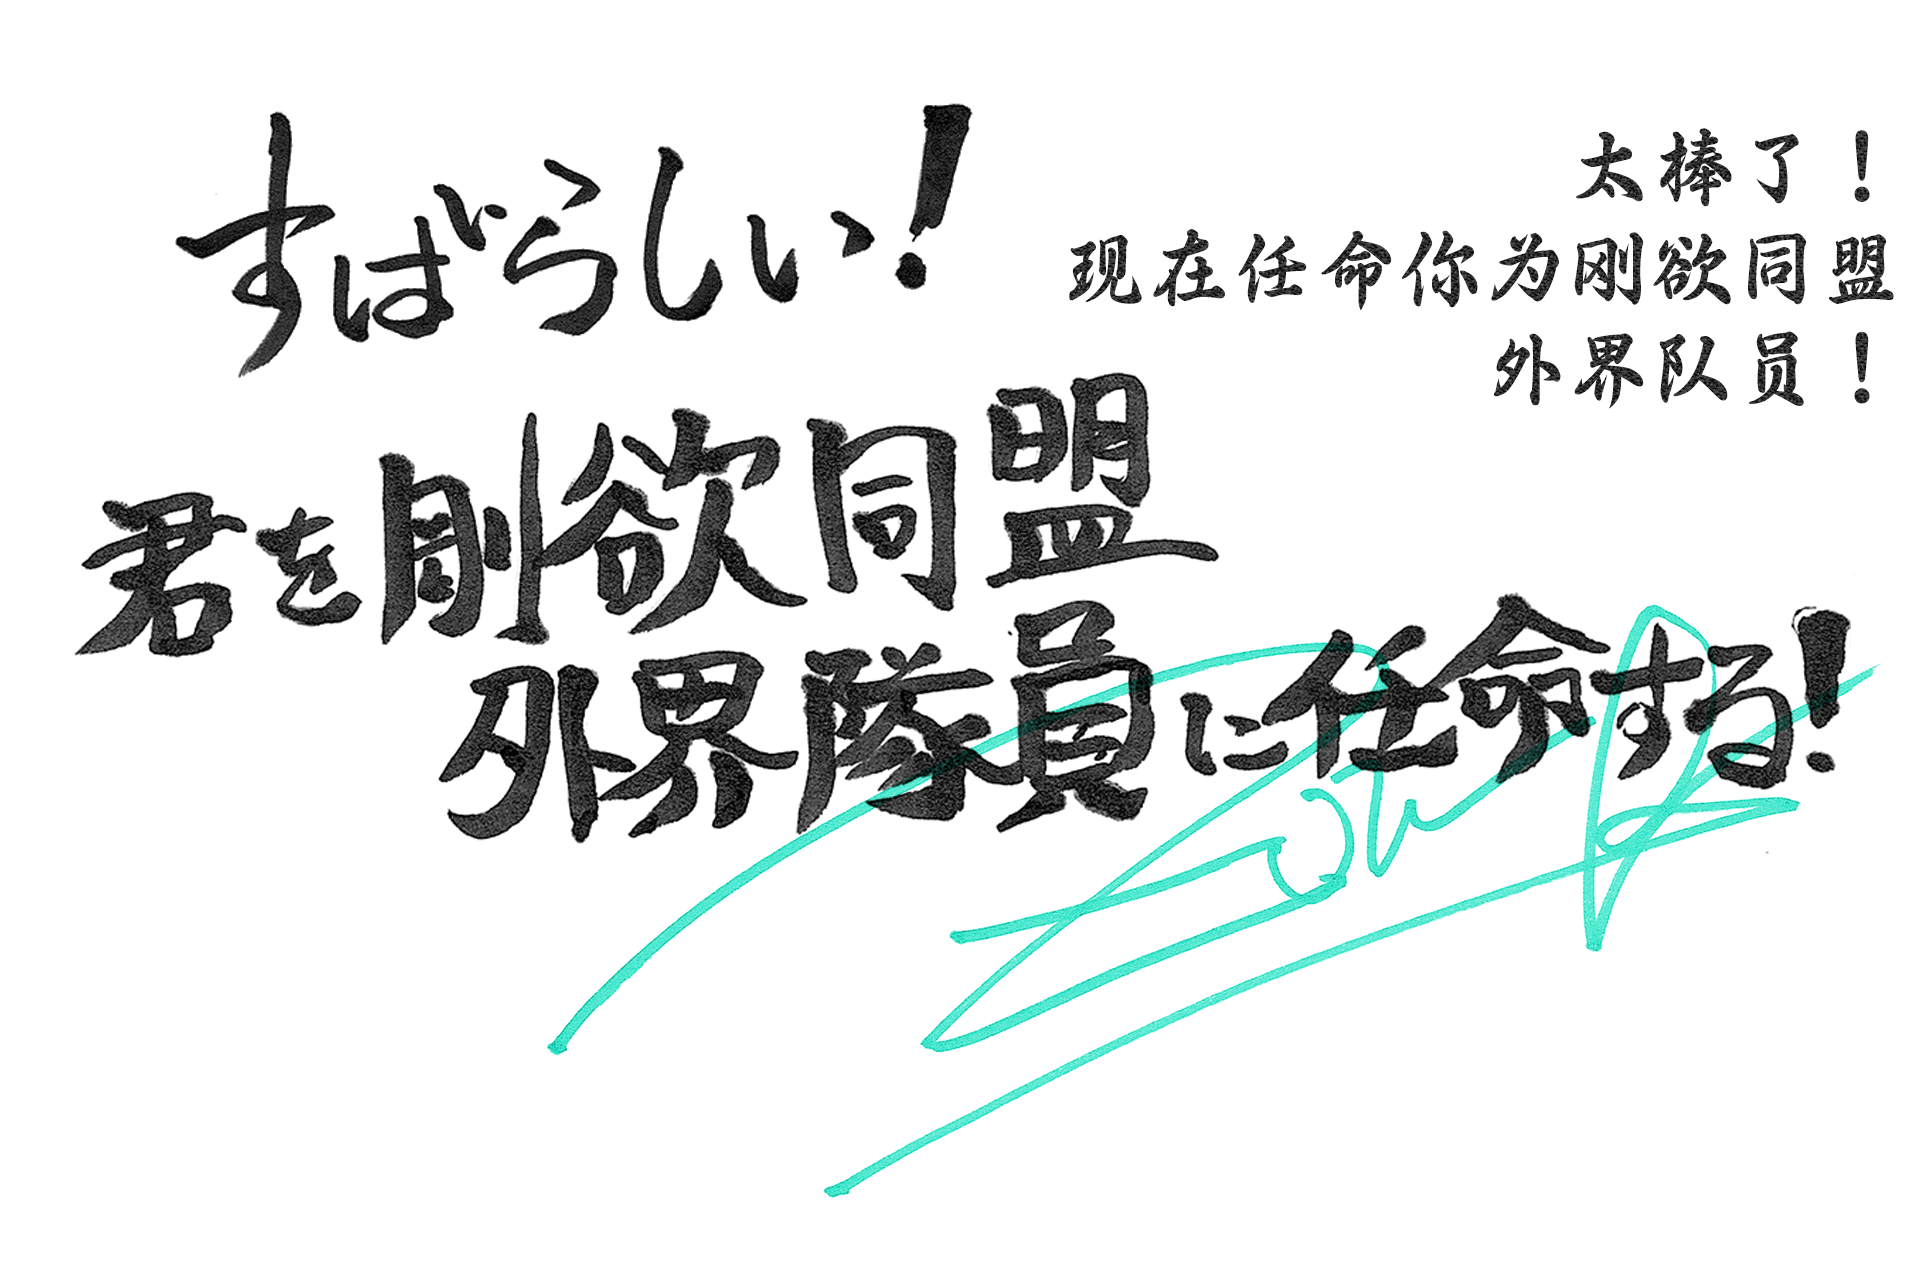 すばらしい!
君を剛欲同盟
外界隊員に任命する!
太棒了！
现在任命你为刚欲同盟
外界队员！